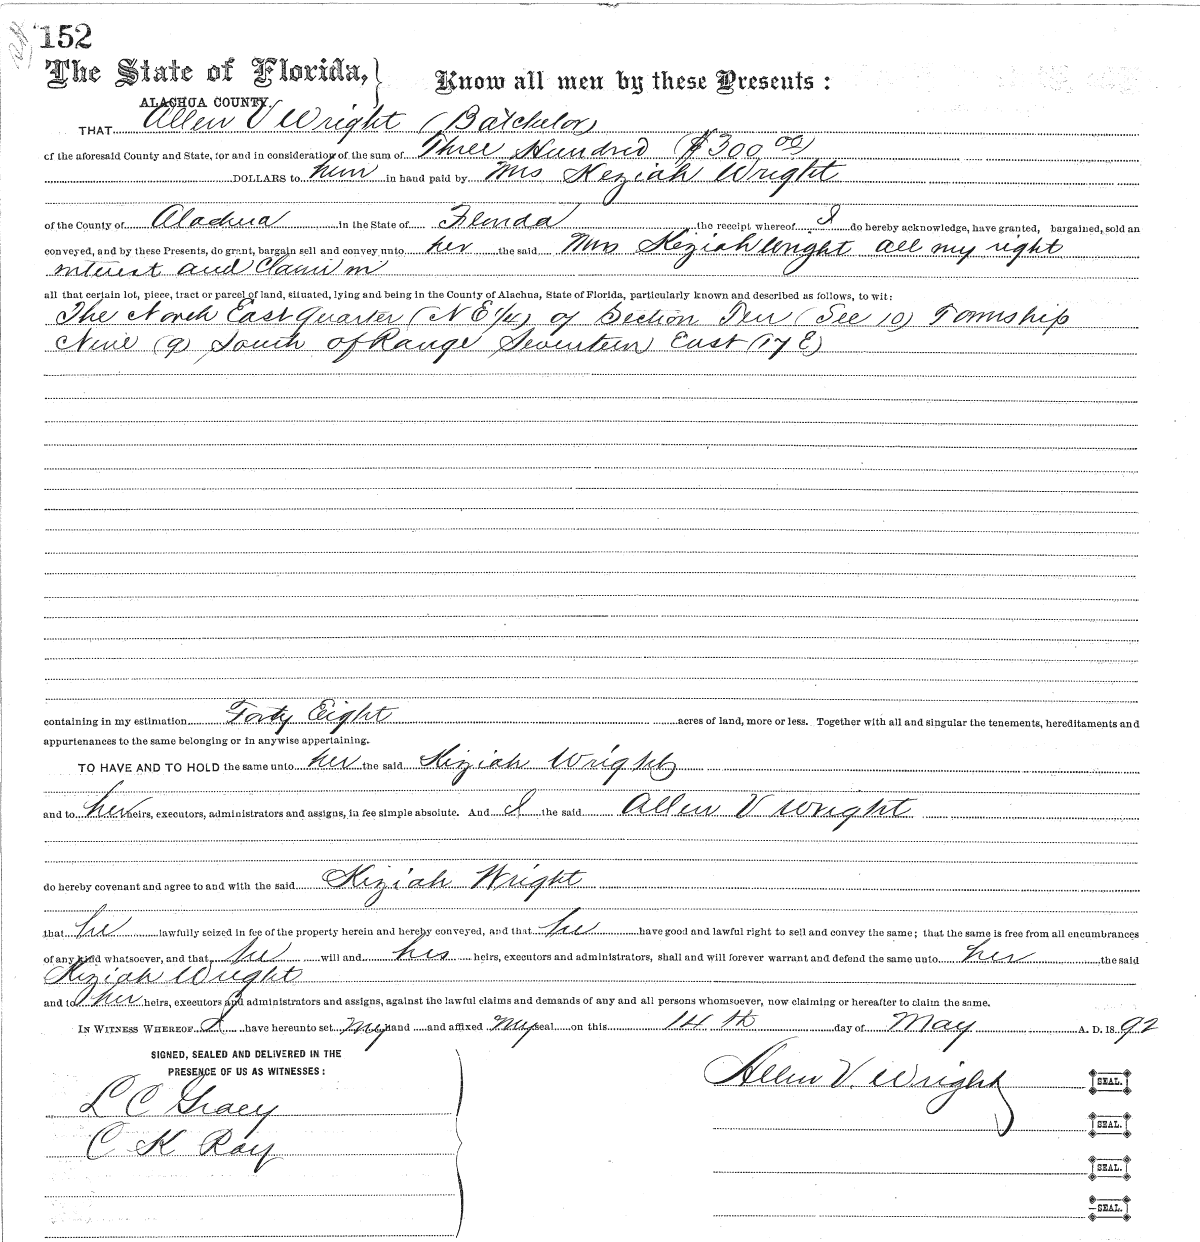 152
The State of Florida,
Know all men by these Presents :
ALACHUA COUNTY.
THAT Allen V Wright (Batchelor)
of the aforesaid County and State, for and in consideration of the sum of Three Hundred ($300 00)
DOLLARS to him in hand paid by Mrs Keziah Wright
of the County of Alachua in the State of Florida the receipt whereof I do hereby acknowledge, have granted, bargained, sold an
conveyed, and by these Presents, do grant, bargain sell and convey unto her the said Mrs Keziah Wright all my right
interest and Claim in
all that certain lot, piece, tract or parcel of land, situated, lying and being in the County of Alachua, State of Florida, particularly known and described as follows, to wit:
The North East Quarter (N E 1/4) of Section Ten (Sec 10) Township
Nine (9) South of Range Seventeen East (17 E)
containing in my estimation Forty Eight acres of land, more or less. Together with all and singular the tenements, hereditaments and
appurtenances to the same belonging or in anywise appertaining.
TO HAVE AND TO HOLD the same unto her the said Keziah Wright
and to her heirs, executors, administrators and assigns, in fee simple absolute. And I the said Allen V Wright
do hereby covenant and agree to and with the said Keziah Wright
that he lawfully seized in fee of the property herein and hereby conveyed, and that he have good and lawful right to sell and convey the same; that the same is free from all encumbrances
of any kind whatsoever, and that he will and his heirs, executors and administrators, shall and will forever warrant and defend the same unto her the said
Keziah Wright
and to her heirs, executors and administrators and assigns, against the lawful claims and demands of any and all persons whomsoever, now claiming or hereafter to claim the same.
IN WITNESS WHEREOF I have hereunto set my hand and affixed my seal on this 14 th day of May A. D. 18 92
SIGNED, SEALED AND DELIVERED IN THE
PRESENCE OF US AS WITNESSES:
Allen V. Wright SEAL.
L C Gracy
SEAL.
C K Ray
SEAL.
SEAL.